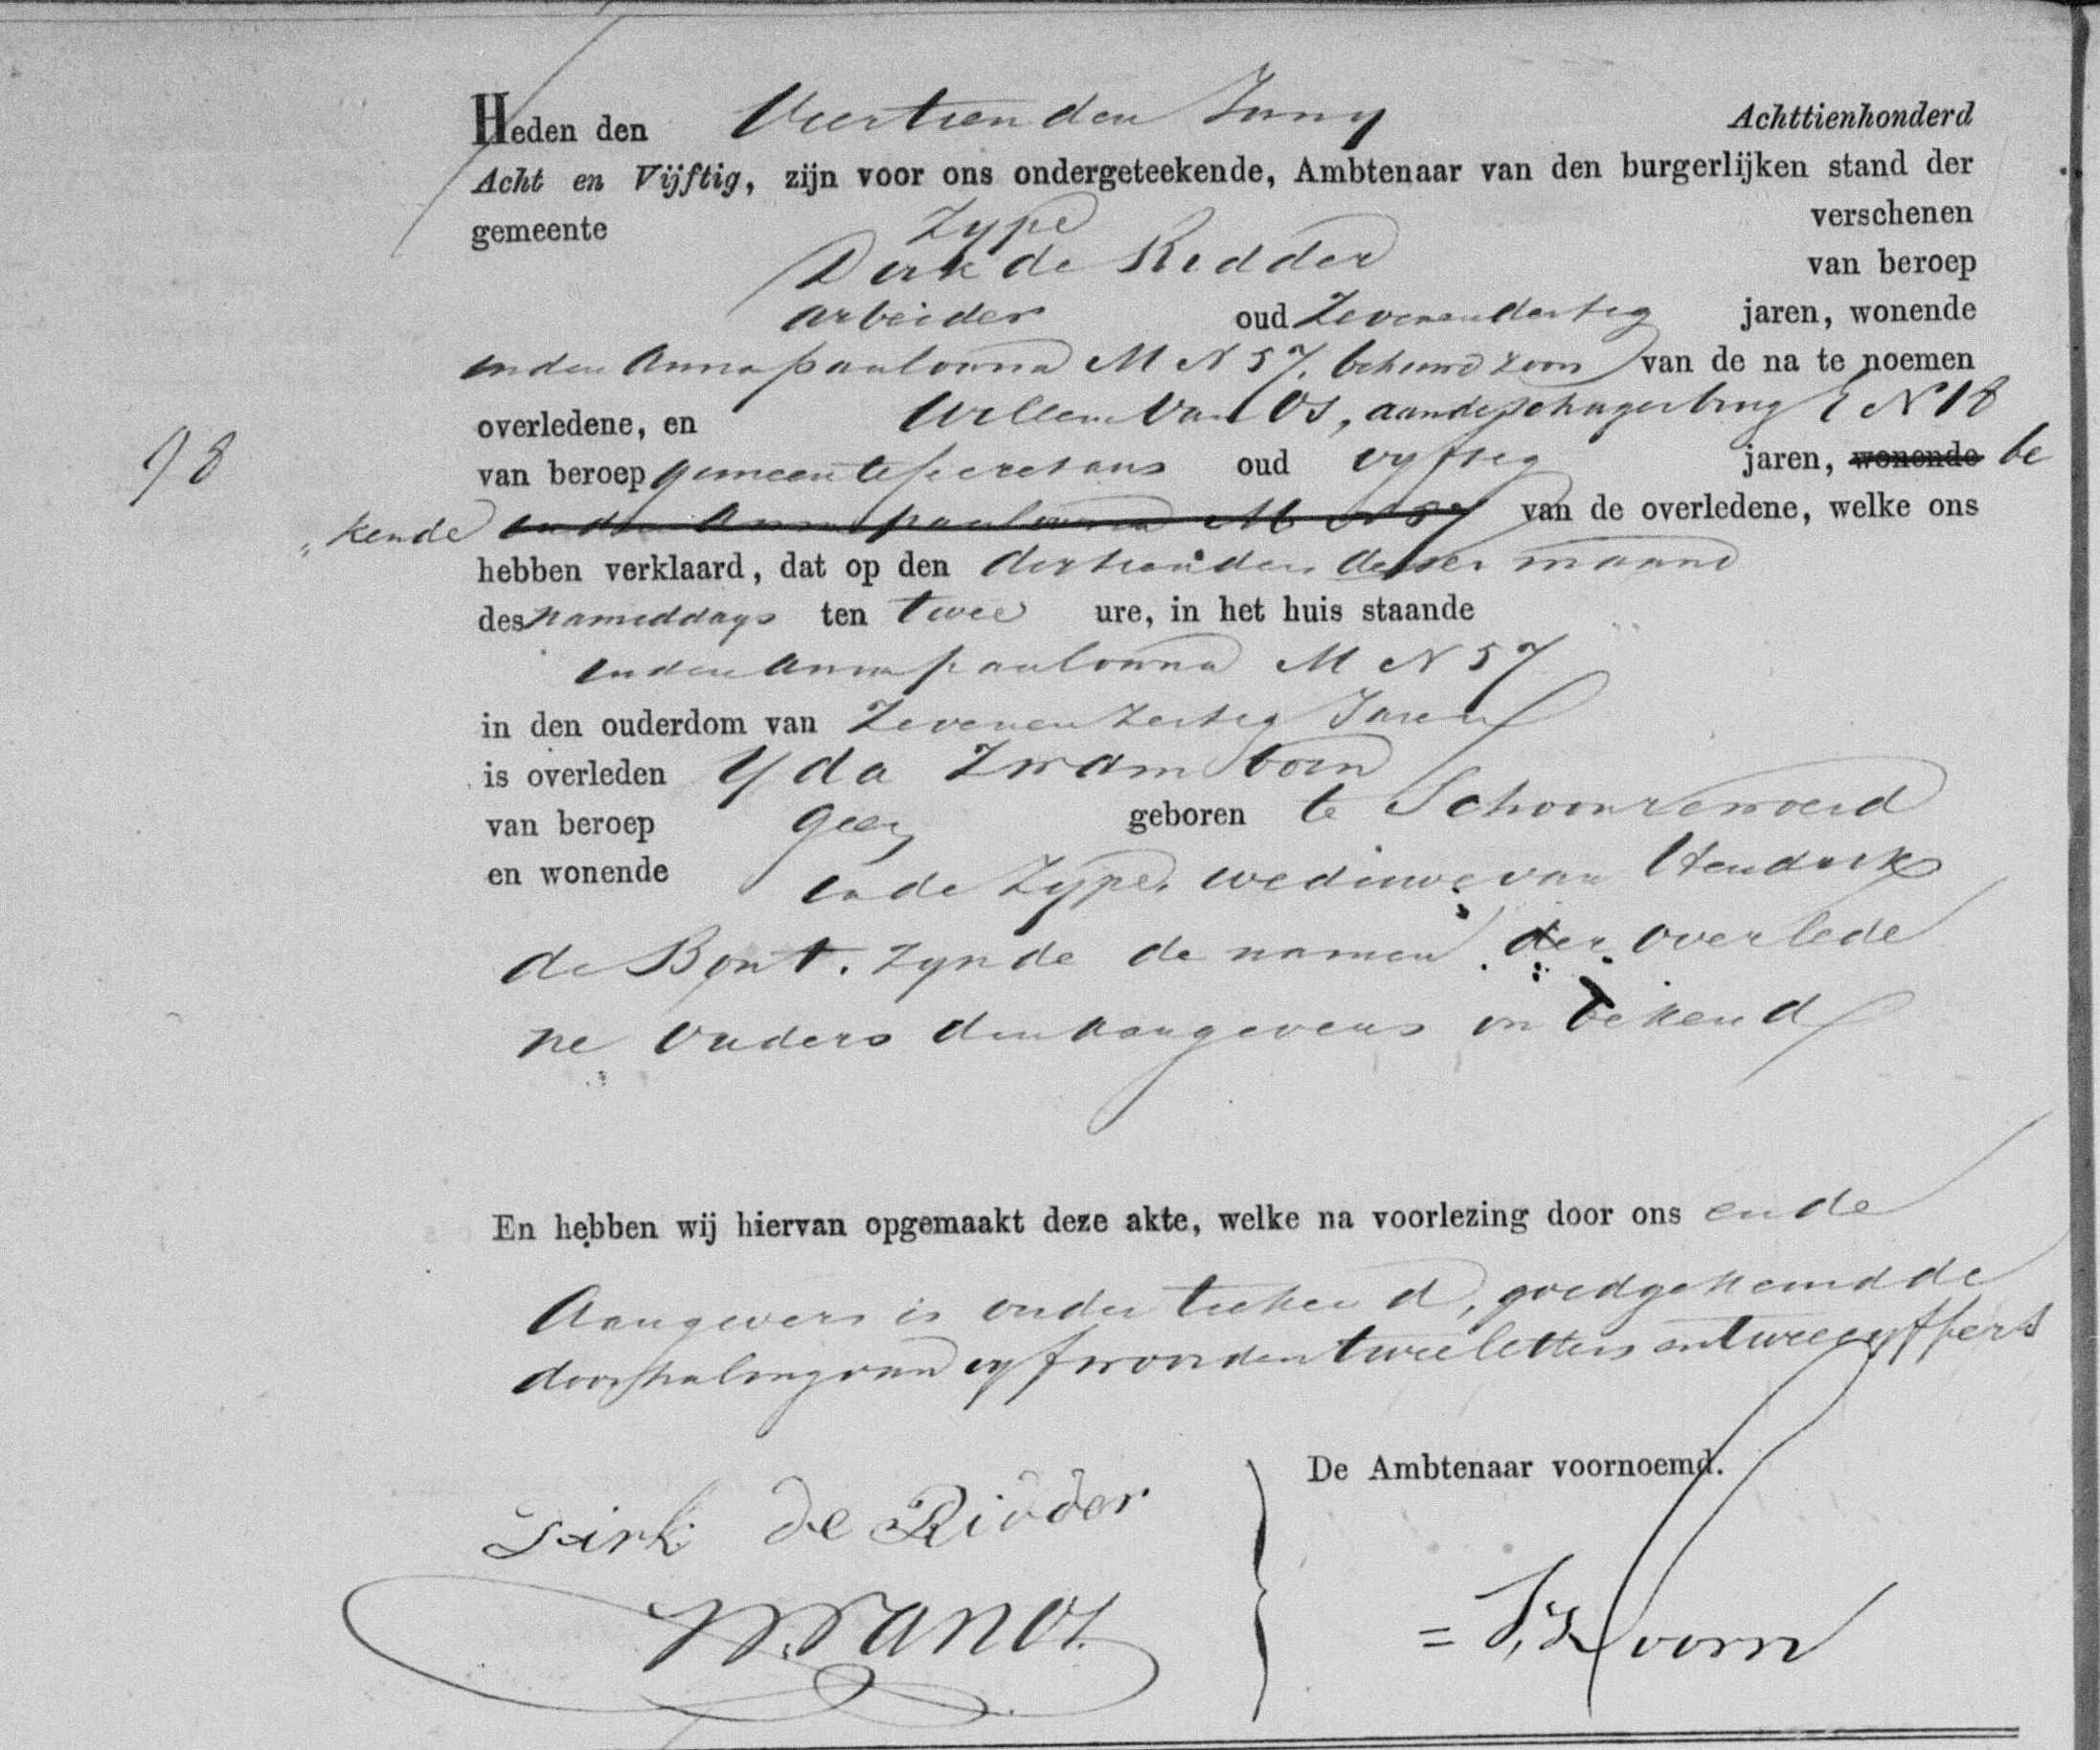 Heden den Veertienden Juny Achttienhonderd
Acht en Vijftig, zijn voor ons ondergeteekende, Ambtenaar van den burgerlijken stand der
gemeente Zype verschenen
Dirk de Ridder van beroep
arbeider oud Zevenendertig jaren, wonende
in den Annapaulowna M N 57. behuwd zoon van de na te noemen
overledene, en Willem van Os, aande Schagerbrug E N 18
van beroep gemeentesecretaris oud vyftig jaren, wonende be
98
kende in den Annapaulowna M N 57 van de overledene, welke ons
hebben verklaard, dat op den dertienden dezer maand
des nameddags ten twee ure, in het huis staande
in den Annapaulowna M N 57
in den ouderdom van Zevenenzestig Jaren
is overleden Yda Zwamborn
van beroep geen geboren te Schoonrewoerd
en wonende in de Zype. weduwe van Hendrik
de Bont. zynde de namen der overlede
ne Ouders den aangevers onbekend
En hebben wij hiervan opgemaakt deze akte, welke na voorlezing door ons en de
Aangevers is onderteekend, goedgekeurd de
doorhaling van vyf woorden twee letters en twee cyffers
De Ambtenaar voornoemd.
Dirk de Ridder
W. van Os.
Hoorn